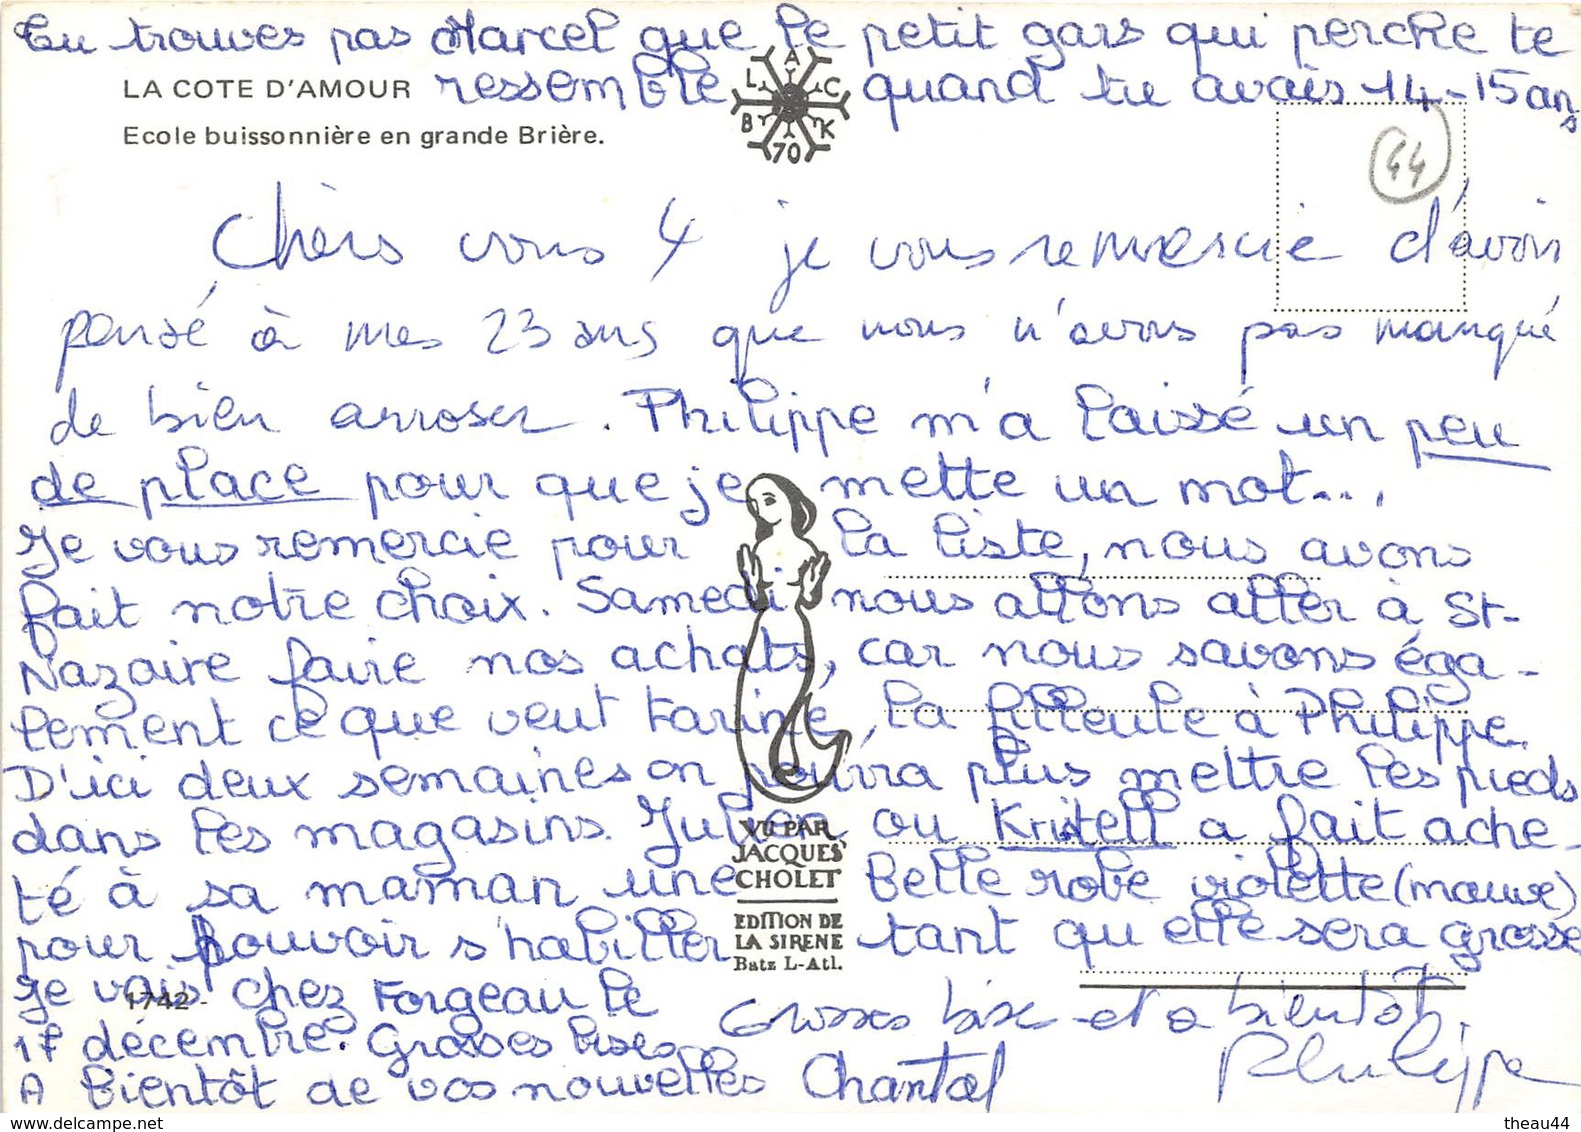 Tu trouves pas Marcel que le petit gars qui perche te
LA COTE D'AMOUR ressemble quand tu avais 14-15 ans
Ecole buissonnière en grande Brière.
BLACK 70
44
Chers vous 4 je vous remercie d'avoir
pensé à mes 23 ans que nous n'avons pas manqué
de bien arroser. Philippe m'a laissé un peu
de place pour que je mette un mot...
Je vous remercie pour la liste, nous avons
fait notre choix. Samedi nous allons aller à St-
Nazaire faire nos achats, car nous savons éga-
lement ce que veut Karine, la filleule à Philippe.
D'ici deux semaines on pourra plus mettre les pieds
dans les magasins. Julien ou Kristell a fait ache-
té à sa maman une belle robe violette (mauve)
pour pouvoir s'habiller tant qu'elle sera grosse
Je vais chez Forgeau le
17 décembre. Grosses bises
A bientôt de vos nouvelles Chantal
Grosses bise et a bientôt.
Philippe
VU PAR
JACQUES
CHOLET
EDITION DE
LA SIRENE
Batz L-Atl.
1742 -
theau44